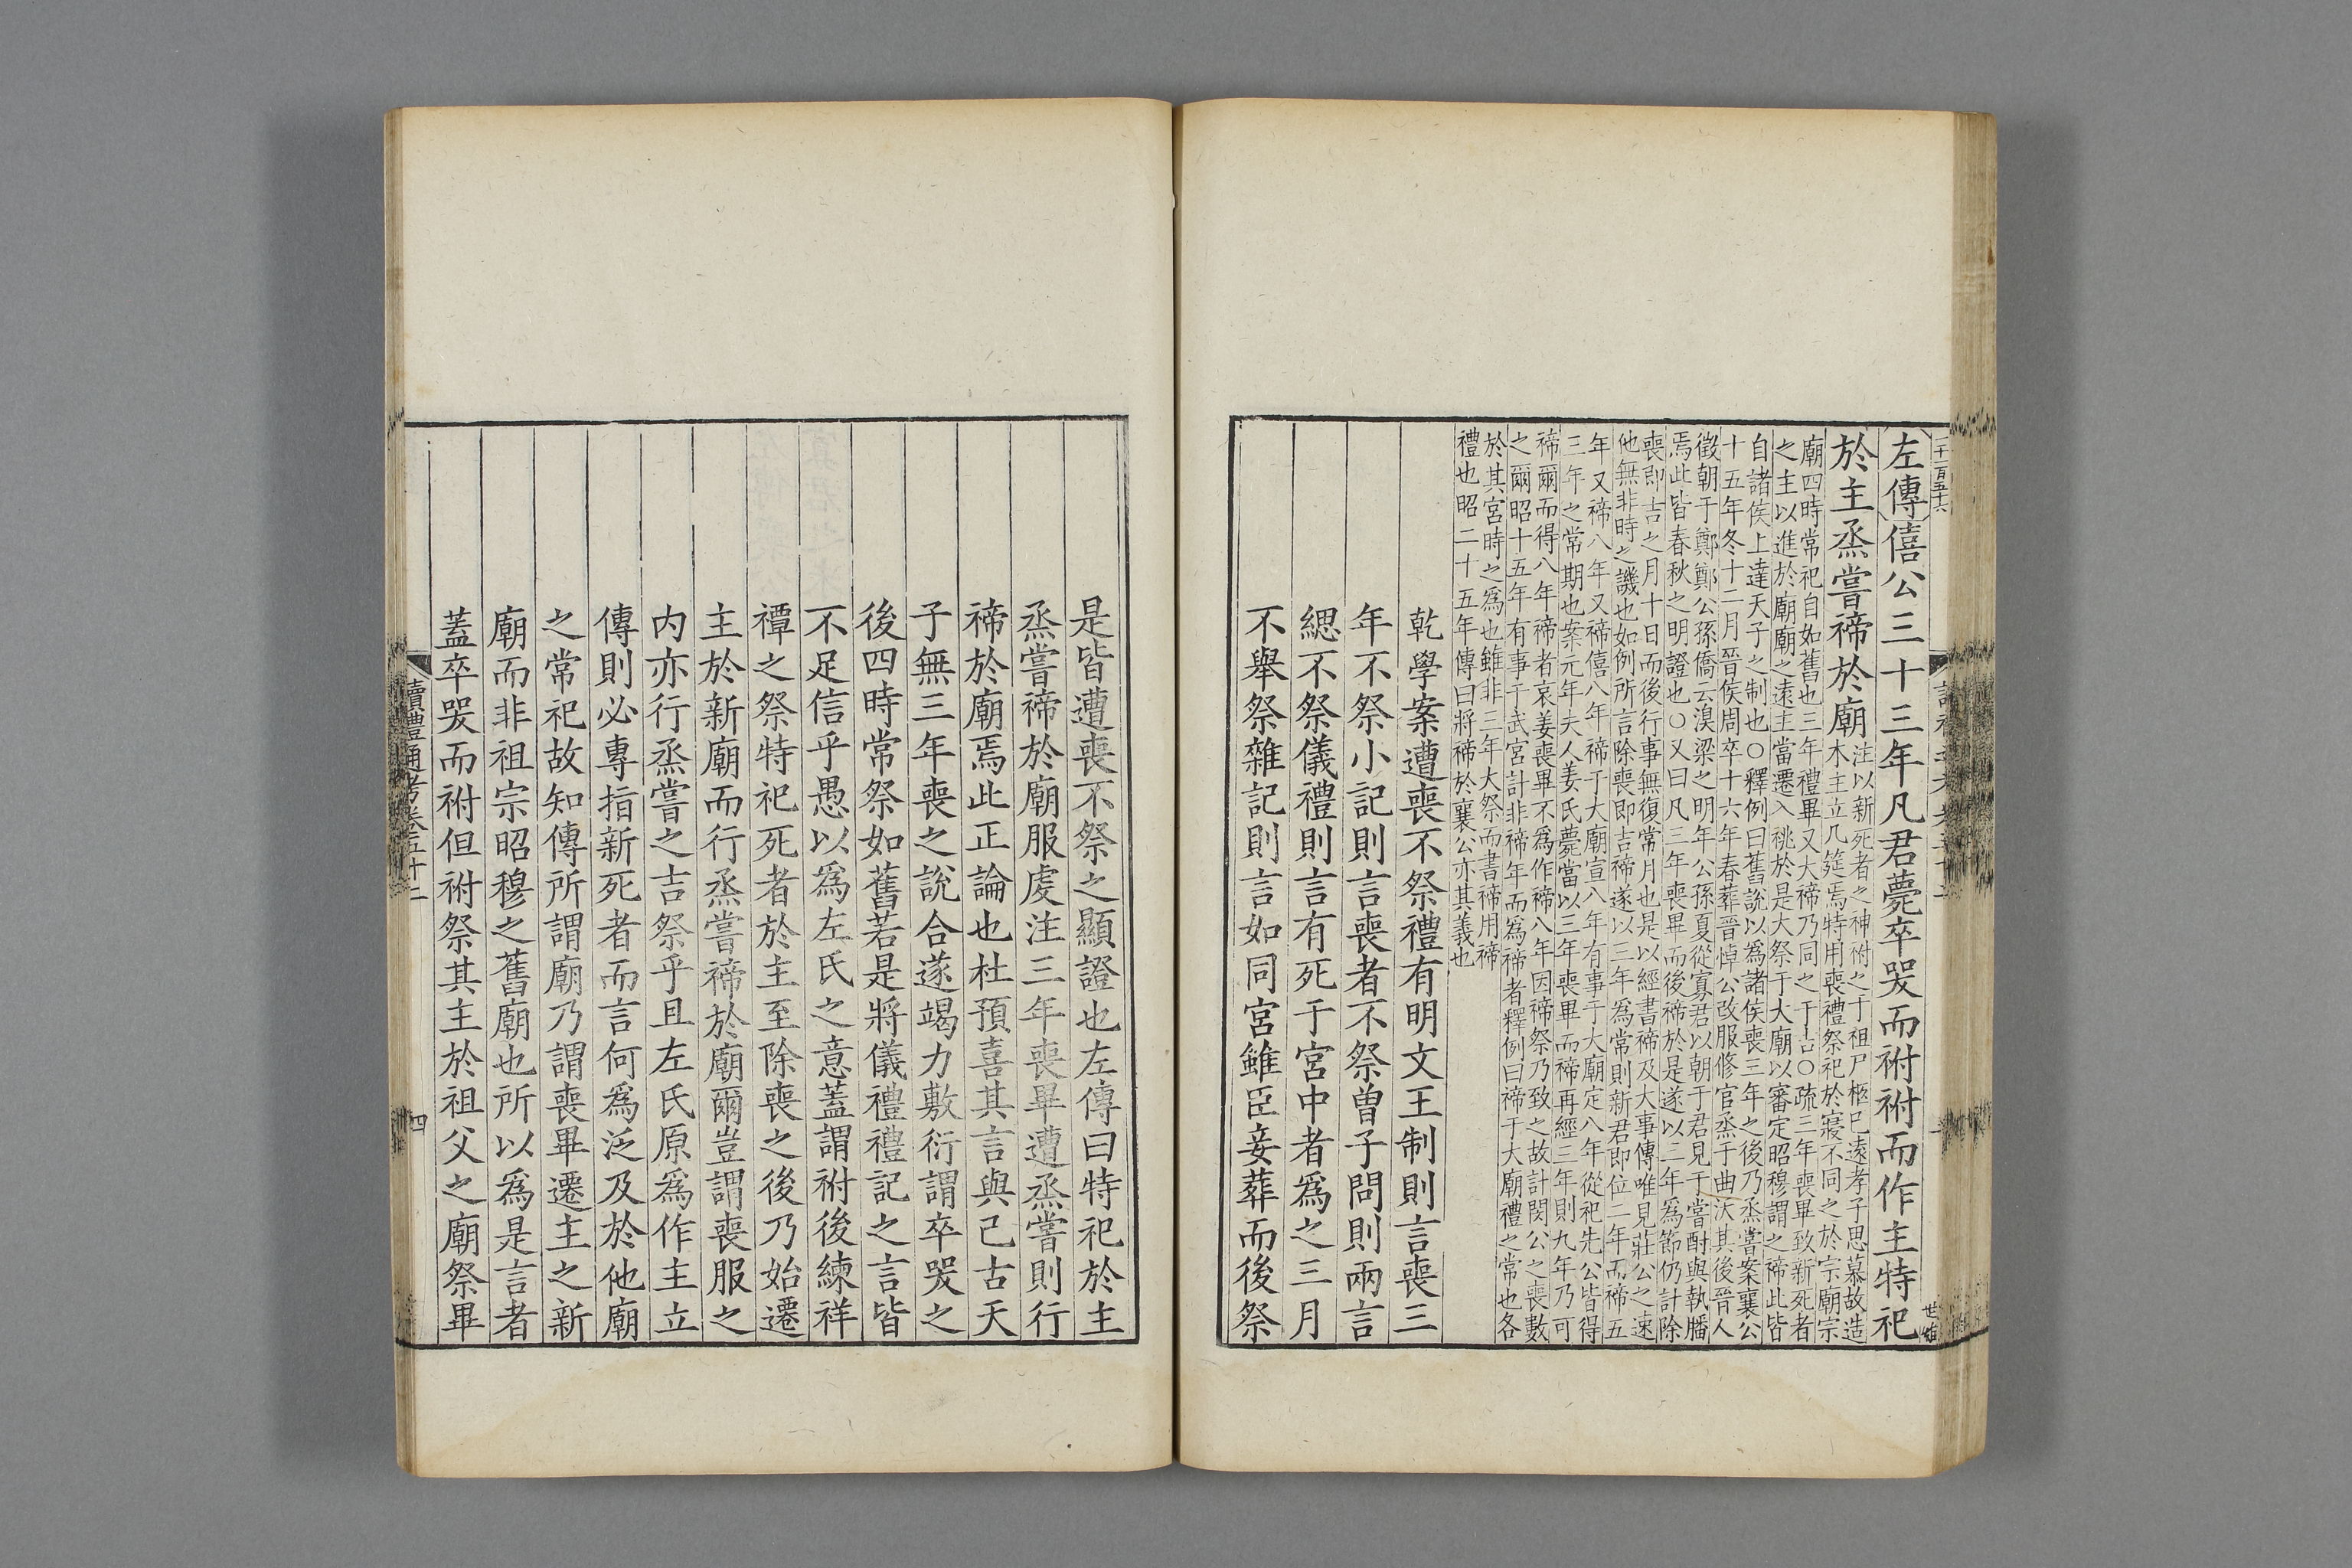 左傳僖公三十三年凡君薨卒哭而祔祔而作主特祀
於主烝嘗禘於廟注以新死者之神祔之于祖尸柩已遠孝子思慕故造
木主立几筵焉特用喪禮祭祀於寢不同之於宗廟宗
廟四時常祀自如舊也三年禮畢又大禘乃同之于吉○疏三年喪畢致新死者
之主以進於廟廟之遠主當遷入祧於是大祭于大廟以審定昭穆謂之禘此皆
自諸侯上達天子之制也○釋例曰舊說以爲諸侯喪三年之後乃烝嘗案襄公
十五年冬十二月晉侯周卒十六年春葬晉悼公改服修官烝于曲沃其後晉人
徵朝于鄭鄭公孫僑云溴梁之明年公孫夏從寡君以朝于君見于嘗酎與執膰
焉此皆春秋之明證也○又曰凡三年喪畢而後禘於是遂以二年爲節仍計除
喪即吉之月十日而後行事無復常月也是以經書禘及大事傳唯見莊公之速
他無非時之譏也如例所言除喪即吉禘遂以三年爲常則新君即位二年而禘五
年又禘八年又禘僖八年禘于大廟宣八年有事于大廟定八年從祀先公皆得
三年之常期也案元年夫人姜氏薨當以三年喪畢而禘再經三年則九年乃可
禘爾而得八年禘者哀姜喪畢不爲作禘八年因禘祭乃致之故計閔公之喪數
之爾昭十五年有事于武宮計非禘年而爲禘者釋例曰禘于大廟禮之常也各
於其宮時之爲也雖非三年大祭而書禘用禘
禮也昭二十五年傳曰將禘於襄公亦其義也
乾學案遭喪不祭禮有明文王制則言喪三
年不祭小記則言喪者不祭曾子問則兩言
緦不祭儀禮則言有死于宮中者爲之三月
不舉祭雜記則言如同宮雖臣妾葬而後祭
是皆遭喪不祭之顯證也左傳曰特祀於主
烝嘗禘於廟服虔注三年喪畢遭烝嘗則行
禘於廟焉此正論也杜預喜其言與己古天
子無三年喪之說合遂竭力敷衍謂卒哭之
後四時常祭如舊若是將儀禮禮記之言皆
不足信乎愚以爲左氏之意蓋謂祔後練祥
禫之祭特祀死者於主至除喪之後乃始遷
主於新廟而行烝嘗禘於廟爾豈謂喪服之
内亦行烝嘗之吉祭乎且左氏原爲作主立
傳則必專指新死者而言何爲泛及於他廟
之常祀故知傳所謂廟乃謂喪畢遷主之新
廟而非祖宗昭穆之舊廟也所以爲是言者
蓋卒哭而祔但祔祭其主於祖父之廟祭畢
讀禮通考卷五十二
四